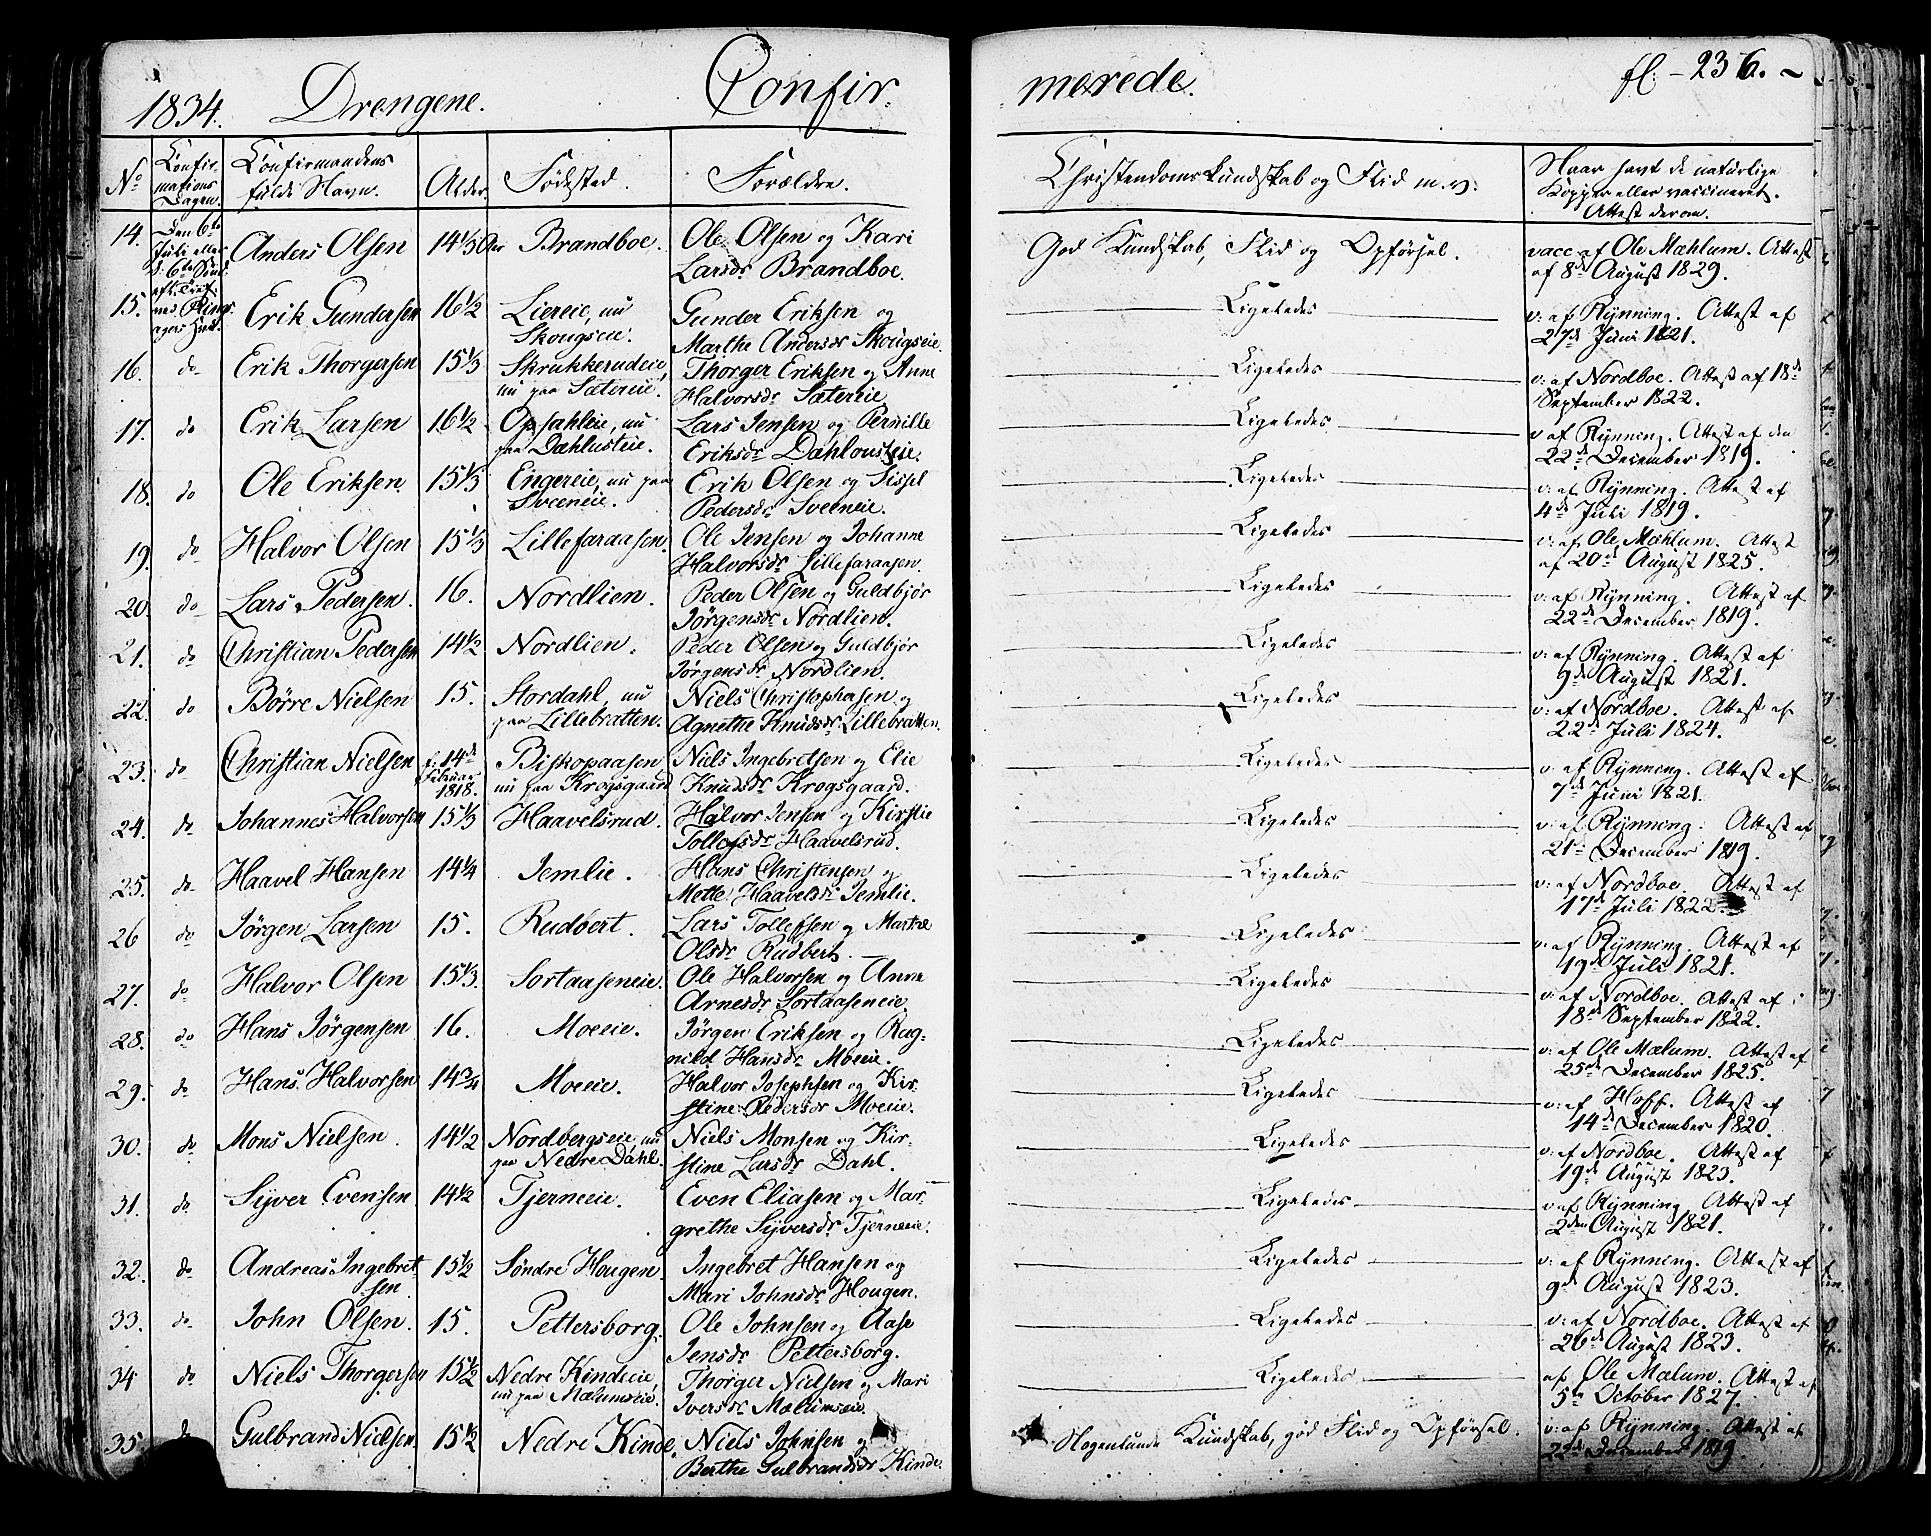 1834. Drengene. Confir-
merede. fl: - 236. -
No
Confir-
mations
Dagen.
Confirmandens
fulde Navn.
Alder.
Fødested.
Forældre.
Christendoms Kundskab og Flid m. v:
Naar havt de naturlige
Kopper eller vaccineret.
Attest derom.
14. Den 6te Juli eller Anders Olsen 14 1/3 Brandboe. Ole Olsen og Kari God Kundskab, Flid og Opførsel. vacc af Ole Mæhlum. Attest
Larsdr Brandboe. af 8de August 1829.
15. Erik Gundersen 16 1/2 Liereie, nu Gunder Eriksen og Ligeledes v: af Rynning. Attest af
Skougseie. Marthe Andersdr Skougseie. 27de Juni 1821.
16. do Erik Thorgersen 15 1/3 Skrukkerudeie, Thorger Eriksen og Anne Ligeledes v: af Nordboe. Attest af 18de
nu paa Sætereie. Halvorsdr Sætereie September 1822.
17. do Erik Larsen 16 1/2 Opsahleie, nu Lars Jensen og Pernille Ligeledes v af Rynning. Attest af den
paa Dahlusteie. Eriksdr Dahlousteie. 22de December 1819.
18. do Ole Eriksen. 15 1/3 Engereie, nu paa Erik Olsen og Sissel Ligeledes v: af Rynning. Attest af
Sveeneie. Pedersdr Sveeneie. 4de Juli 1819.
19. do Halvor Olsen 15 1/3 Lillefaraasen. Ole Jensen og Johanne Ligeledes v: af Ole Mæhlum. Attest
Halvorsdr Lillefaraasen. af 20de August 1825.
20. do Lars Pedersen. 16. Nordlien. Peder Olsen og Guldbjør Ligeledes v: af Rynning. Attest af
Jørgensdr Nordlien. 22de December 1819.
21. do Christian Pedersen 14 1/2 Nordlien. Peder Olsen og Guldbjør Ligeledes v: af Rynning. Attest af
Jørgensdr Nordlien. 9de August 1821.
22. do Børre Nielsen 15. Stordahl, nu Niels Christophersen og Ligeledes v: af Nordboe. Attest af
paa Lillebratten. Agnethe Knudsdr Lillebratten. 22de Juli 1824.
23. do Christian Nielsen f: 14de Biskopaasen Niels Ingebretsen og Elie Ligeledes v: af Rynning. Attest af
Februar 1818. nu paa Krogsgaard Knudsdr Krogsgaard. 7de Juni 1821.
24. do Johannes Halvorsen 15 1/3 Haavelsrud. Halvor Jensen og Kirstie Ligeledes v: af Rynning: Attest af
Tollefsdr Haavelsrud. 21de December 1819.
25. do Haavel Hansen 14 1/4 Jemlie. Hans Christensen og Ligeledes v: af Nordboe. Attest af
Mette Haavelsdr Jemlie. 17de Juli 1822.
26 do Jørgen Larsen 15. Rudbert. Lars Tollefsen og Marthe Ligeledes v: af Rynning. Attest af
Olsdr Rudbert. 19de Juli 1821.
27. do Halvor Olsen 15 1/3. Sortaaseneie. Ole Halvorsen og Anne Ligeledes v: af Nordboe. Attest af
Arnesdr Sortaaseneie 18de September 1822.
28. do Hans Jørgensen 16. Moeeie. Jørgen Eriksen og Rag- Ligeledes v: af Ole Mælum. Attest af
nild Hansdr Moeeie. 25de December 1825.
29. do Hans Halvorsen 14 3/4 Moeeie. Halvor Josephsen og Kir- Ligeledes v: af Hoff. Attest af
stine Pedersdr Moeeie. 14de December 1820.
30. do Mons Nielsen. 14 1/2 Nordbergseie, nu Niels Monsen og Kir- Ligeledes v: af Nordboe. Attest af
paa Nedre Dahl. stine Larsdr Dahl. 19de August 1823.
31. do Syver Evensen 14 1/2 Tjerneeie. Even Eliasen og Mar- Ligeledes v af Rynning Attest af
grethe Syversdr Tjerneeie. 2den August 1821.
32. do Andreas Ingebret- 15 1/2 Søndre Hougen. Ingebret Hansen og Ligeledes v: af Rynning. Attest af
sen Mari Johnsdr Hougen. 9de August 1823.
33. do John Olsen. 15. Pettersborg. Ole Johnsen og Aase Ligeledes v: af Nordboe. Attest af
Jensdr Pettersborg. 26de August 1823.
34 do Niels Thorgersen 15 1/2 Nedre Kindeeie Thorger Nielsen og Mari Ligeledes af Ole Mælum. Attest af
nu paa Mælumseie. Iversdr Mælumseie. 5te October 1827.
35. do Gulbrand Nielsen 15 1/2 Nedre Kinde, Niels Johnsen og Nogenlunde Kundskab, god Flid og Opførsel. v: af Rynning. Attest af
Berthe Gulbrandsdr Kinde. 22de December 1819.